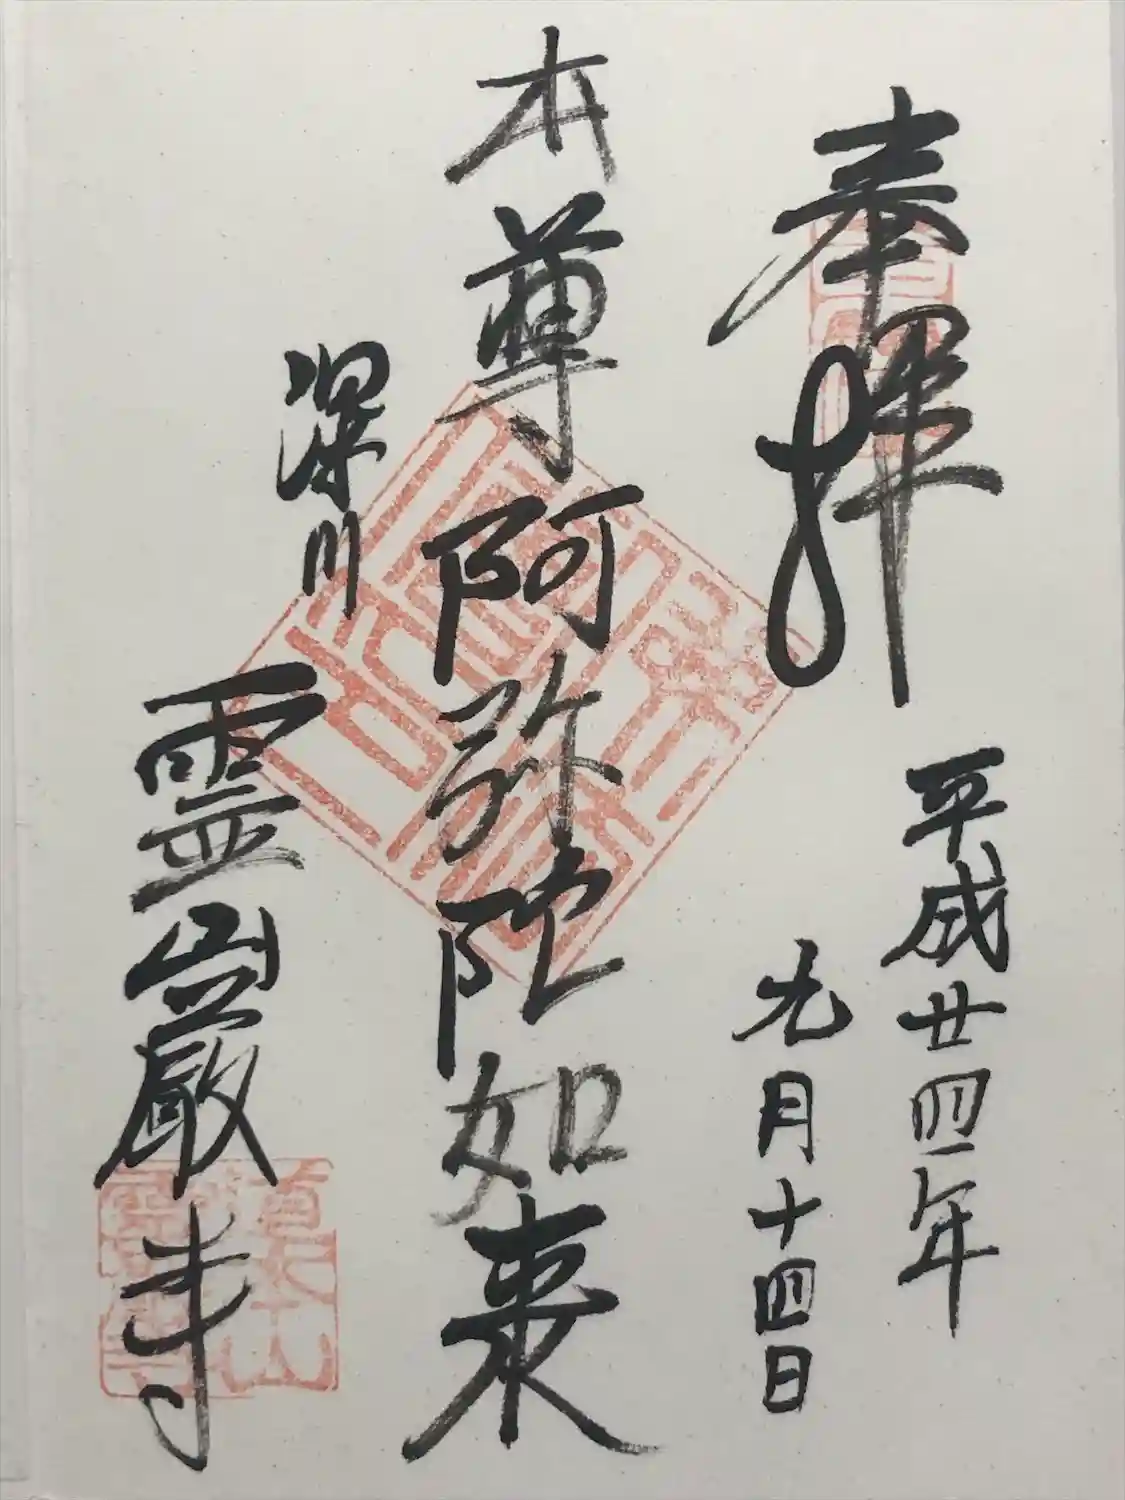 奉拝
平成廿四年
九月十四日
本尊阿弥陀如来
深川
霊巌寺